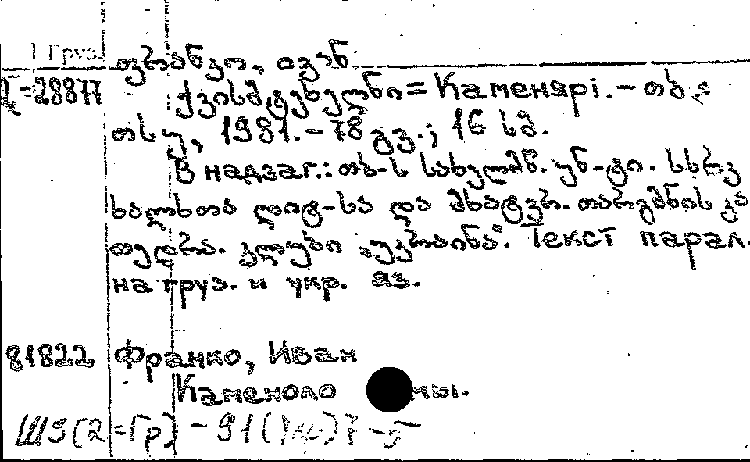 1 Груз.
ფრანკო, ივან
Д-28877 ქვისმტეხელნი = Каменярі. – თბ.:
თსუ, 1981. – 78 გვ.; 16 სმ.
В надзаг.: თბ-ს სახელმწ. უნ-ტი. სსრკ
ხალხთა ლიტ-სა და მხატვრ. თარგმნის კა
თედრა. კლუბი „უკრაინა“. Текст парал.
на груз. и укр. яз.
81822 Франко, Иван
Каменоло мы.
Ш5(2=Гр)